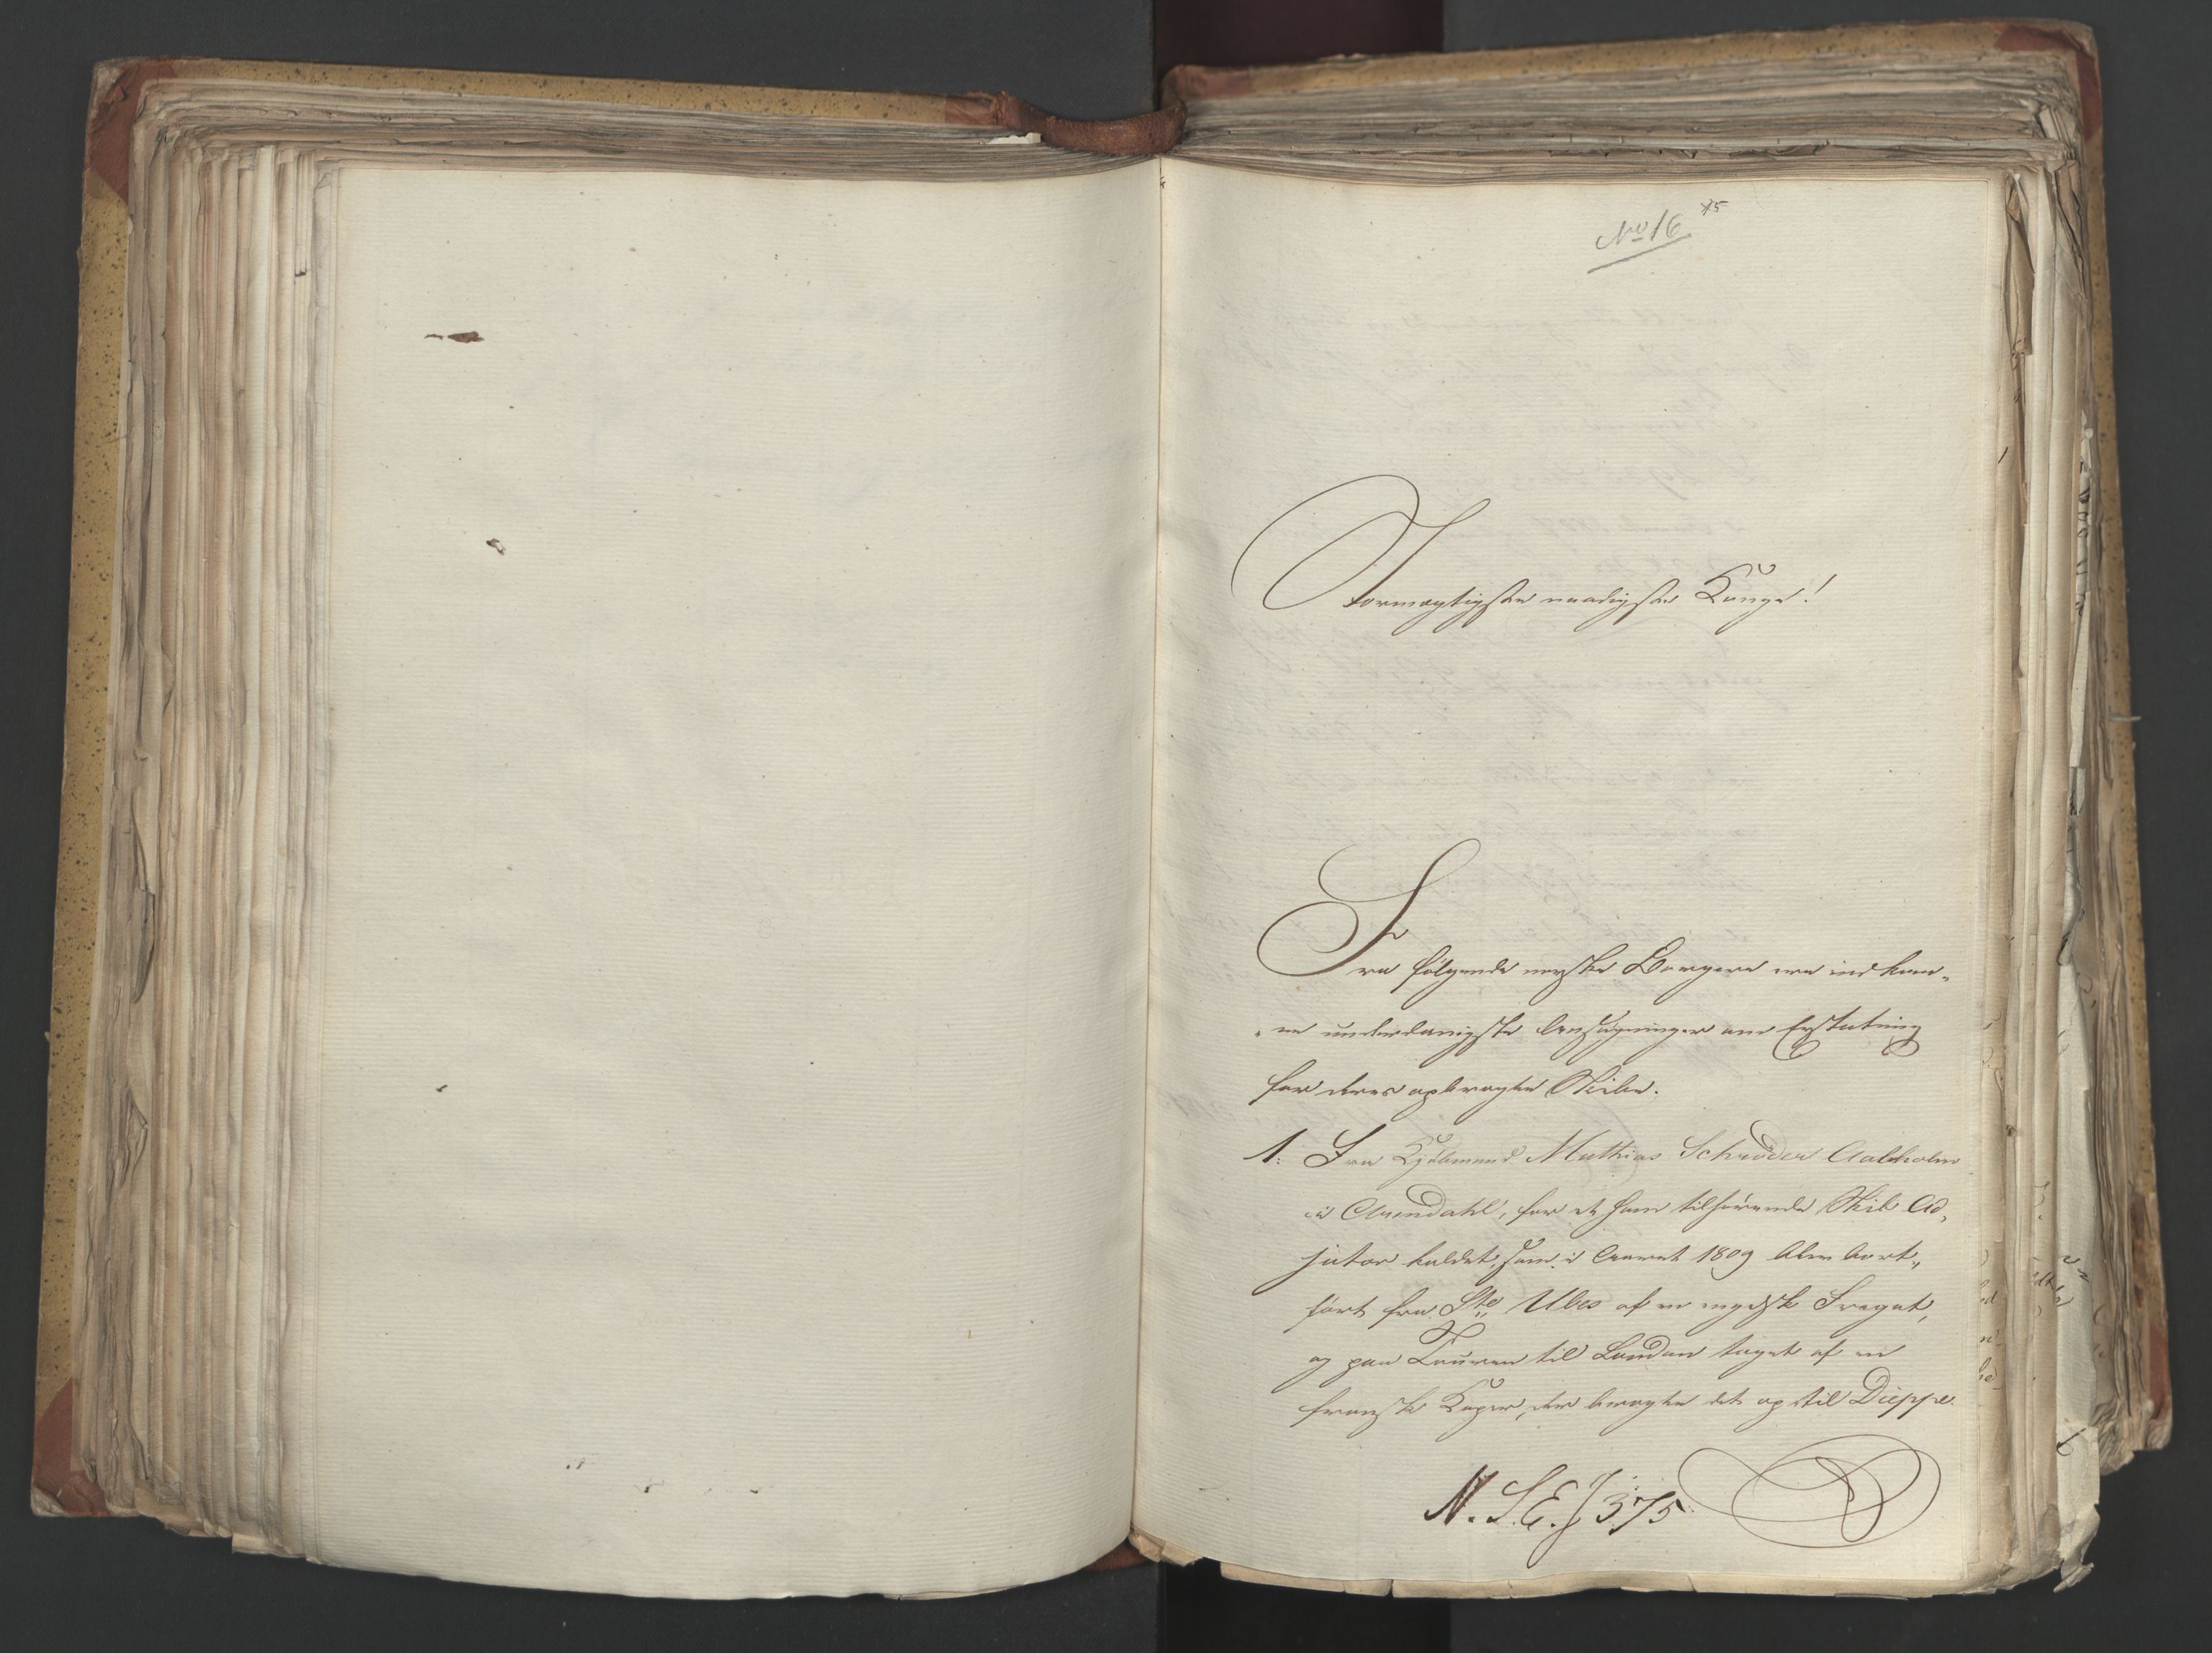 No 16 75
Stormægtigste naadigste Konge!
Fra følgende norske Borgere ere indkom-
-ne underdanigste Ansøgninger om Erstatning
for deres opbragte Skibe.
1. Fra Kjøbmand Mathias Schrøder Aalholm
i Arendahl, for det ham tilhørende Skib Ad,
jutor kaldet, som i Aaret 1809 blev bort,,
ført fra Ste Ubes af en engelsk Fregat,
og paa Touren til London taget af en
fransk Kaper, der bragte det op til Dieppe.
N. S. E. J 375